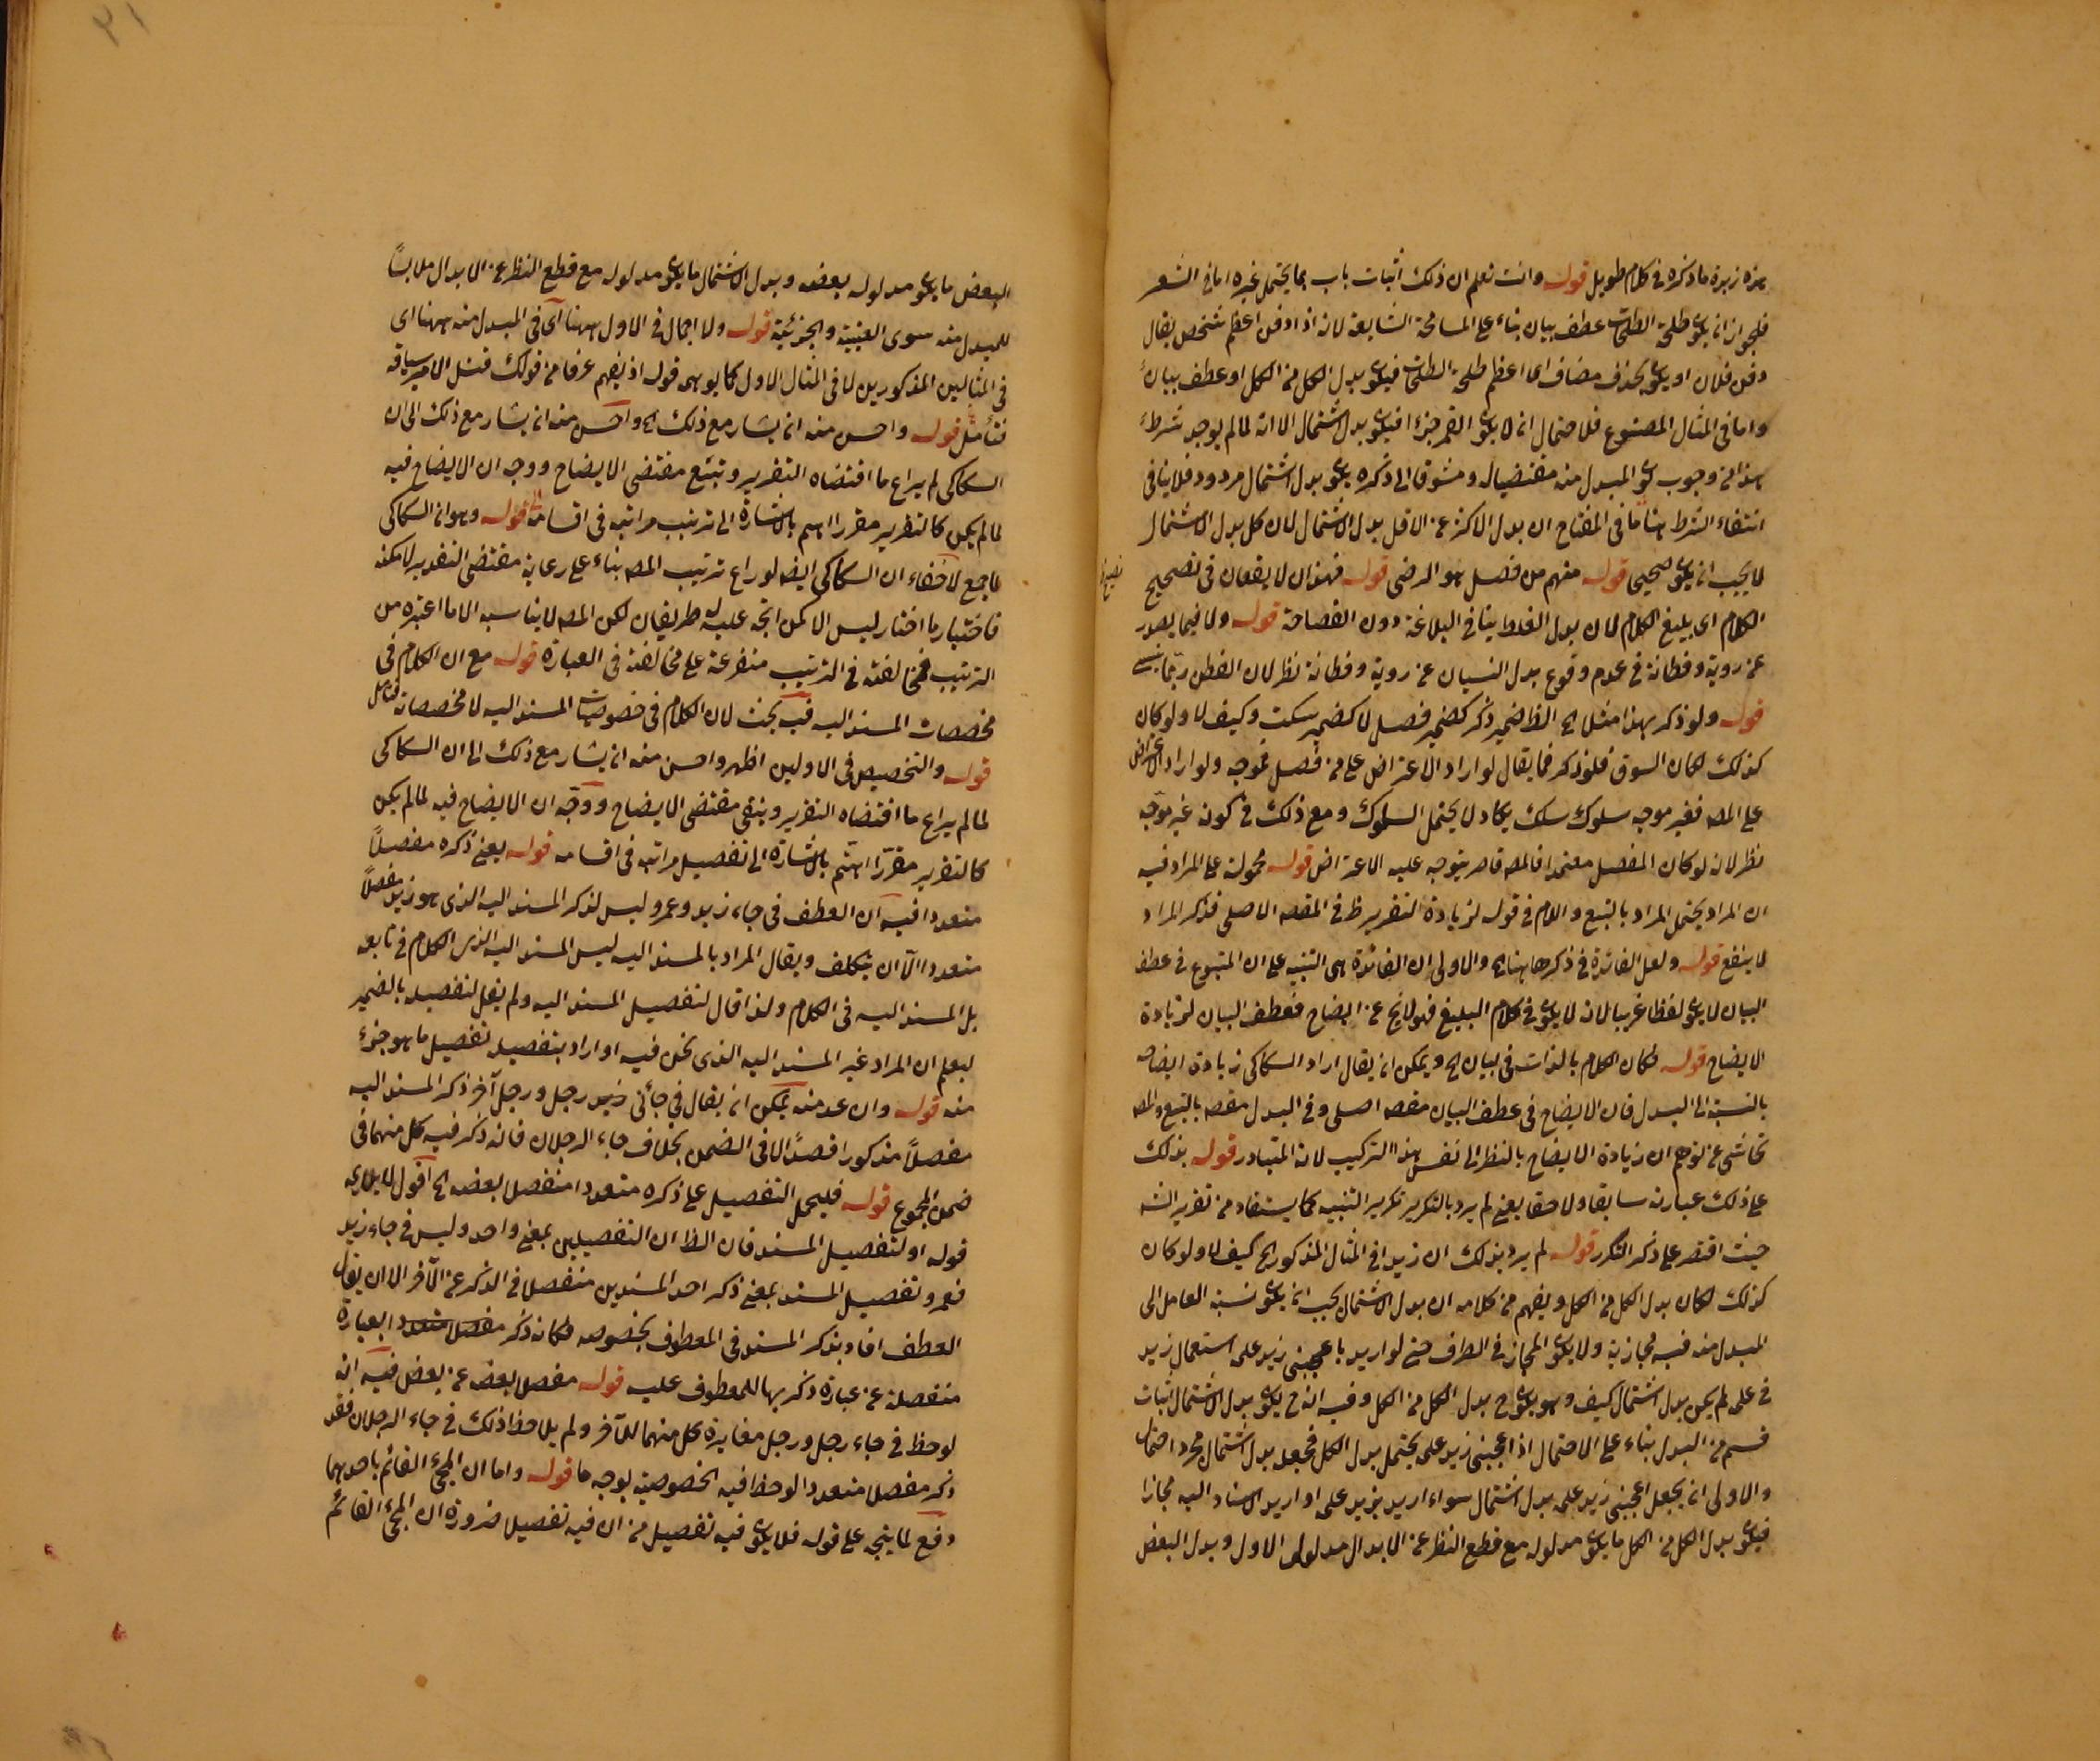 هذه زبدة ما ذكره في كلام طويل قوله وانت تعلم ان ذلك اثبات باب بما يحتمل غيره اما في الشعر
فلجواز ان يكون طلحة الطلحات عطف بيان بناء على المسامحة الشايعة لانه اذا دفن اعظم شخص يقال
دفن فلان او يكون بحذف مضاف اى اعظم طلحة الطلحات فيكون بدل الكل من الكل او عطف بيان
واما في المثال المصنوع فلاحتمال ان لا يكون القمر جزءا فيكون بدل اشتمال الا انه لما لم يوجد شرطه
هذا من وجوب كون المبدل منه مقتضيا له ومشوقا الى ذكره يكون بدل اشتمال مردود فلا ينافي
انتفاء الشرط هنا ما في المفتاح ان بدل الاكثر عن الاقل بدل الاشتمال لان كل بدل الاشتمال
لا يجب ان يكون صحيحا قوله منهم من فصل هو الرضى قوله فهذان لا يقعان في تصحيح
الكلام اى بليغ الكلام لان بدل الغلط ينافي البلاغة دون الفصاحة قوله ولا فيما يصدر
عن روية وفطانة في عدم وقوع بدل النسيان عن روية وفطانة نظر لان الفطن ربما ينسى
قوله ولو ذكر بهذا مثلا الخ الظ ضمير ذكر كضمير فصل لا كضمير سكت وكيف لا ولو كان
كذلك لكان السوق فلو ذكر فما يقال لو اراد الاعتراض على من فصل فموجه ولو اراد الاعتراض
على المصه فغير موجه سلوك سكت يكاد لا يحتمل السلوك ومع ذلك في كونه غير موجه
نظر لانه لو كان المفصل معتمدا فالمصه قاصر يتوجه عليه الاعتراض قوله محمولة على المراد فيه
ان المراد يحتمل المراد بالتبع واللام في قوله لزيادة التقرير ظ في المقصه الاصلي فذكر المراد
لا ينفع قوله ولعل الفائدة في ذكرها هنا الخ والاولى ان الفائدة هى التنبيه على ان المتبوع في عطف
البيان لا يكون لفظا غريبا لانه لا يكون في كلام البليغ فهو لا يخ عن ايضاح فعطف البيان لزيادة
الايضاح قوله فكان الكلام بالذات في لبيان الخ ويمكن ان يقال اراد السكاكى زيادة ايضاح
بالنسبة الى البدل فان الايضاح في عطف البيان مقصه اصلى وفي البدل مقصه بالتبع والمصه
تحاشى عن توهم ان زيادة الايضاح بالنظر الى نفس هذا التركيب لانه المتبادر قوله بذلك
على ذلك عبارته سابقا ولاحقا يعني لم يرد بالتكرير تكرير التنبيه كما يستفاد من تقرير الشه
حيث اقتصر على ذكر التكرر قوله لم يرد بذلك ان زيدا في المثال المذكور الخ كيف لا ولو كان
كذلك لكان بدل الكل من الكل ويفهم من كلامه ان بدل الاشتمال يجب ان يكون نسبة العامل الى
المبدل منه فيه مجازية ولا يكون المجاز في الطرف حتى لو اريد باعجبنى زيد علمه استعمال زيد
في علمه لم يكن بدل اشتمال كيف وهو يكون ح بدل الكل من الكل وفيه ان ح يكون بدل الاشتمال اثبات
قسم من البدل بناء على الاحتمال اذ اعجبنى زيد علمه يحتمل بدل الكل فجعله بدل اشتمال مجرد احتمال
والاولى ان يجعل اعجبنى زيد علمه بدل اشتمال سواء اريد بزيد علمه او اريد الاسناد اليه مجازا
فيكون بدل الكل من الكل ما يكون مدلوله مع قطع النظر عن الابدال مدلول الاول وبدل البعض
البعض ما يكون مدلوله بعضه وبدل الاشتمال ما يكون مدلوله مع قطع النظر عن الابدال ملابسا
للمبدل منه سوى العينية والجزئية قوله ولا اجمال في الاول ههنا اى في المبدل منه ههنا اى
في المثالين المذكورين لا في المثال الاول كما يوهم قوله اذ يفهم عرفا من قولك قتل الامير سيافه
فتأمل قوله واحسن منه ان يشار مع ذلك الخ واحسن منه ان يشار مع ذلك الى ان
السكاكى لم يراع ما اقتضاه التقرير وتتبع مقتضى الايضاح ووجه ان الايضاح فيه
لما لم يكن كالتقرير مقررا اهم بالاشارة الى ترتيب مراتبه في اقسامه قوله وهو ان السكاكى
لا خفاء ان السكاكى ايضه لو راع ترتيب المصه بناء على رعاية مقتضى التقدير لامكنه
فاختيار ما اختار ليس الا لكن اتجه عليه طريقان لكن المصه لا يناسبه الا ما اعتبره من
الترتيب فمخالفته في الترتيب متفرعة على مخالفته في العبارة قوله مع ان الكلام في
مخصصات المسند اليه فيه بحث لان الكلام في خصوصيات المسند اليه لا مخصصاته فتأمل
قوله والتخصيص في الاولين اظهر واحسن منه ان يشار مع ذلك الى ان السكاكى
لما لم يراع ما اقتضاه التقرير وبنفى مقتضى الايضاح ووجه ان الايضاح فيه لما لم يكن
كالتقرير مقررا اهتم بالاشارة الى تفصيل مراتبه في اقسامه قوله يعني ذكره مفصلا
متعددا فيه ان العطف في جاء زيد وعمرو ليس لذكر المسند اليه الذى هو زيد مفصلا
متعددا الا ان يتكلف ويقال المراد بالمسند اليه ليس المسند اليه الذى الكلام في تابعه
بل المسند اليه في الكلام ولذا قال لتفصيل المسند اليه ولم يقل لتفصيله بالضمير
ليعلم ان المراد غير المسند اليه الذى نحن فيه او اراد بتفصيله تفصيل ما هو جزء
منه قوله وان عد منه يمكن ان يقال في جائنى زيد رجل ورجل آخر ذكر المسند اليه
مفصلا مذكورا قصدا لا في الضمن بخلاف جاء الرجلان فانه ذكر فيه كل منهما في
ضمن المجموع قوله فليحمل التفصيل على ذكره متعددا منفصلا بعضه الخ اقول لا يلايمه
قوله او لتفصيل المسند فان الظ ان التفصيلين بمعنى واحد وليس في جاء زيد
فعمرو تفصيل المسند بمعنى ذكر احد المسندين منفصلا في الذكر عن الآخر الا ان يقال
العطف افاد بذكر المسند في المعطوف بخصوصه فكانه ذكر مفصلا متعددا بعبارة
منفصلة عن عبارة ذكر بها للمعطوف عليه قوله مفصلا بعضه عن بعض فيه انه
لوحظ في جاء رجل ورجل مغايرة كل منهما للآخر ولم يلاحظ ذلك في جاء الرجلان فقد
ذكر مفصلا متعددا لوحظ فيه الخصوصية بوجه ما قوله واما ان المجئ القائم باحدهما
دفع لما يتجه على قوله فلا يكون فيه تفصيل من ان فيه تفصيلا ضرورة ان المجئ القائم